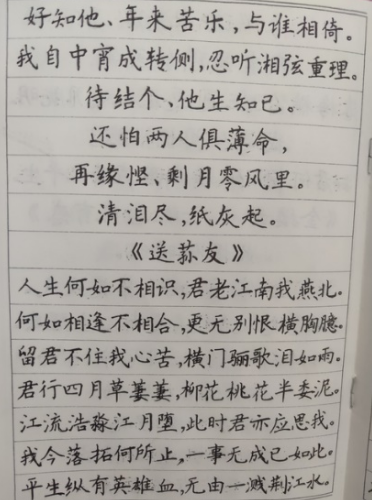 好知他、年来苦乐，与谁相倚。
我自中宵成转侧，忍听湘弦重理。
待结个、他生知已。
还怕两人俱薄命，
再缘悭、剩月零风里。
清泪尽，纸灰起。
《送荪友》
人生何如不相识，君老江南我燕北。
何如相逢不相合，更无别恨横胸臆。
留君不住我心苦，横门骊歌泪如雨。
君行四月草萋萋，柳花桃花半委泥。
江流浩淼江月堕，此时君亦应思我。
我今落拓何所止，一事无成已如此。
平生纵有英雄血，无由一溅荆江水。